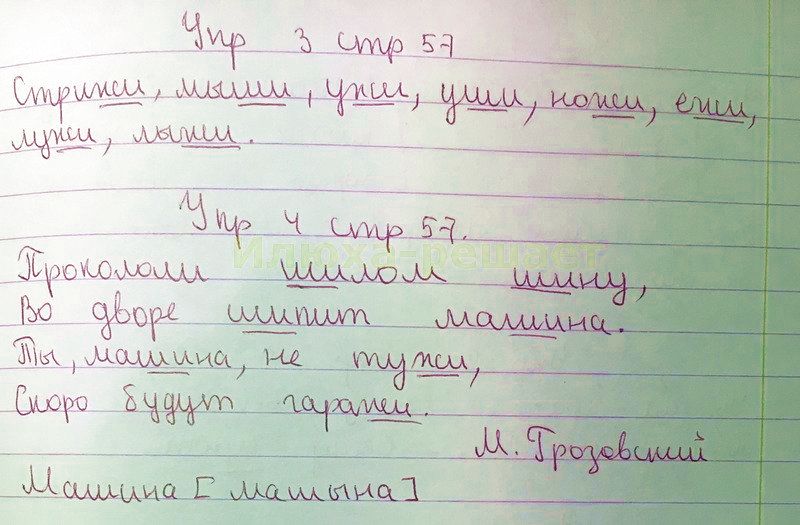 Упр 3 стр 57
Стрижи, мыши, ужи, уши, ножи, ежи,
лужи, лыжи.
Упр 4 стр 57.
Илюха-решает
Прокололи шилом шину,
Во дворе шипит машина.
Ты, машина, не тужи,
Скоро будут гаражи.
М. Грозовский
Машина [машына]